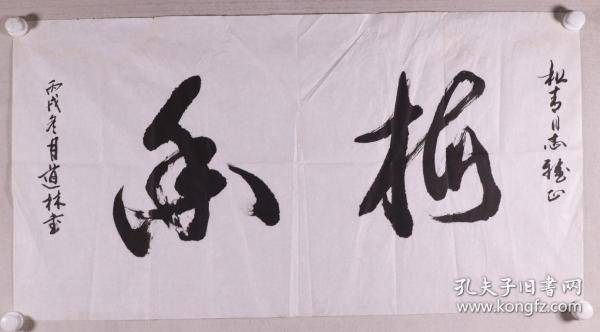 松青同志雅正
梅香
丙戌冬月道林书
孔夫子旧书网
www.kongfz.com